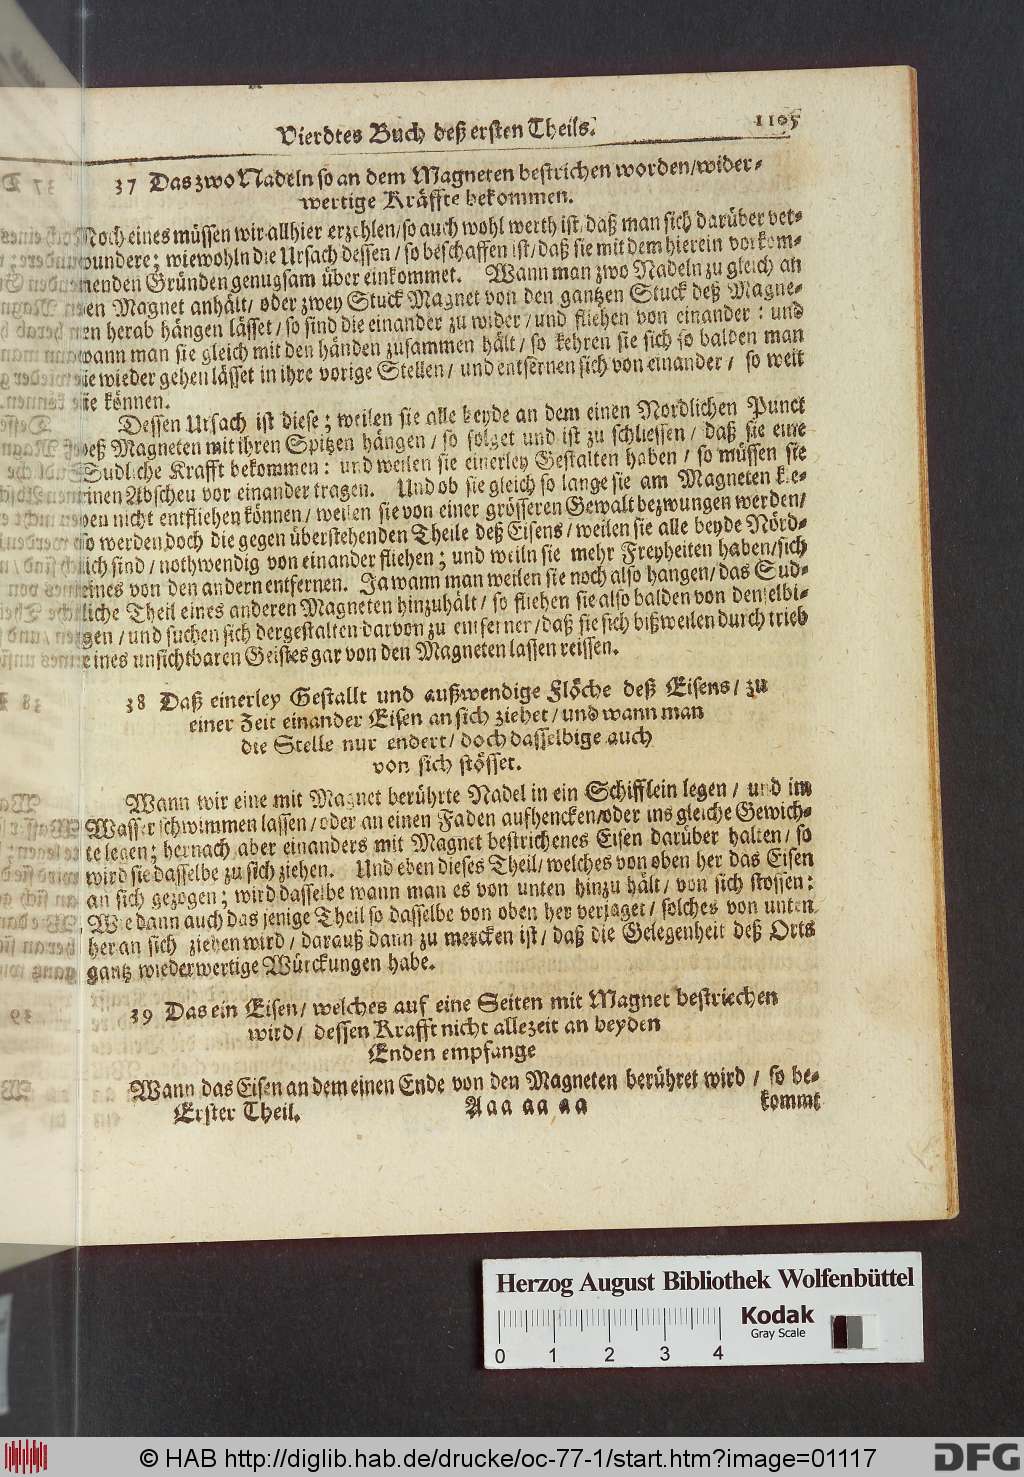 Vierdtes Buch deß ersten Theils. 1105
37 Das zwo Nadeln so an dem Magneten bestrichen worden/wider-
wertige Kräffte bekommen.
Noch eines müssen wir allhier erzehlen/so auch wohl werth ist/daß man sich darüber ver-
wundere; wiewohln die Ursach dessen/so beschaffen ist/daß sie mit dem hierein vorkom-
menden Gründen genugsam über einkommet. Wann man zwo Nadeln zu gleich an
den Magnet anhält/oder zwey Stuck Magnet von den gantzen Stuck deß Magne-
ten herab hängen lässet/so sind die einander zu wider/und fliehen von einander: und
wann man sie gleich mit den händen zusammen hält/so kehren sie sich so balden man
sie wieder gehen lässet in ihre vorige Stellen/und entfernen sich von einander/ so weit
sie können.
Dessen Ursach ist diese; weilen sie alle beyde an dem einen Nordlichen Punct
deß Magneten mit ihren Spitzen hängen/so folget und ist zu schliessen/daß sie eine
Sudliche Krafft bekommen: und weilen sie einerley Gestalten haben/so müssen sie
einen Abscheu vor einander tragen. Und ob sie gleich so lange sie am Magneten kle-
ben nicht entfliehen können/weilen sie von einer grösseren Gewalt bezwungen werden/
so werden doch die gegen überstehenden Theile deß Eisens/weilen sie alle beyde Nörd-
lich sind/nothwendig von einander fliehen; und weiln sie mehr Freyheiten haben/sich
eines von den andern entfernen. Ja wann man weilen sie noch also hangen/das Sud-
liche Theil eines anderen Magneten hinzuhält/so fliehen sie also balden von denselbi-
gen/und suchen sich dergestalten darvon zu entferner/daß sie sich bißweilen durch trieb
eines unsichtbaren Geistes gar von den Magneten lassen reissen.
38 Daß einerley Gestallt und außwendige Flöche deß Eisens/zu
einer Zeit einander Eisen an sich ziehet/und wann man
die Stelle nur endert/doch dasselbige auch
von sich stösset.
Wann wir eine mit Magnet berührte Nadel in ein Schifflein legen/ und im
Wasser schwimmen lassen/oder an einen Faden aufhencken/oder ins gleiche Gewich-
te legen; hernach aber einanders mit Magnet bestrichenes Eisen darüber halten/so
wird sie dasselbe zu sich ziehen. Und eben dieses Theil/welches von oben her das Eisen
an sich gezogen; wird dasselbe wann man es von unten hinzu hält/von sich stossen:
Wie dann auch das jenige Theil so dasselbe von oben her verjaget/solches von unten
her an sich ziehen wird/darauß dann zu mercken ist/daß die Gelegenheit deß Orts
gantz wiederwertige Würckungen habe.
39 Das ein Eisen/welches auf eine Seiten mit Magnet bestriechen
wird/ dessen Krafft nicht allezeit an beyden
Enden empfange
Wann das Eisen an dem einen Ende von den Magneten berühret wird/ so be-
Erster Theil. Aaa aa aa kommt
Herzog August Bibliothek Wolfenbüttel
Kodak
Gray Scale
0 1 2 3 4
© HAB http://diglib.hab.de/drucke/oc-77-1/start.htm?image=01117
DFG